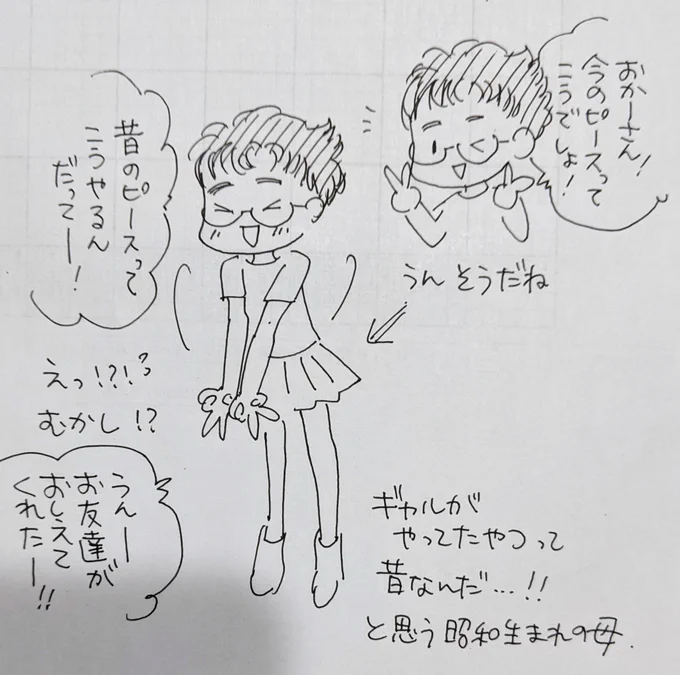 おかーさん!
今のピースって
こうでしょ!
うん そうだね
昔のピースって
こうやるん
だってー!
えっ!?!?
むかし!?
うんー
お友達が
おしえて
くれたー!!
ギャルが
やってたやつって
昔なんだ…!!
と思う昭和生まれの母.